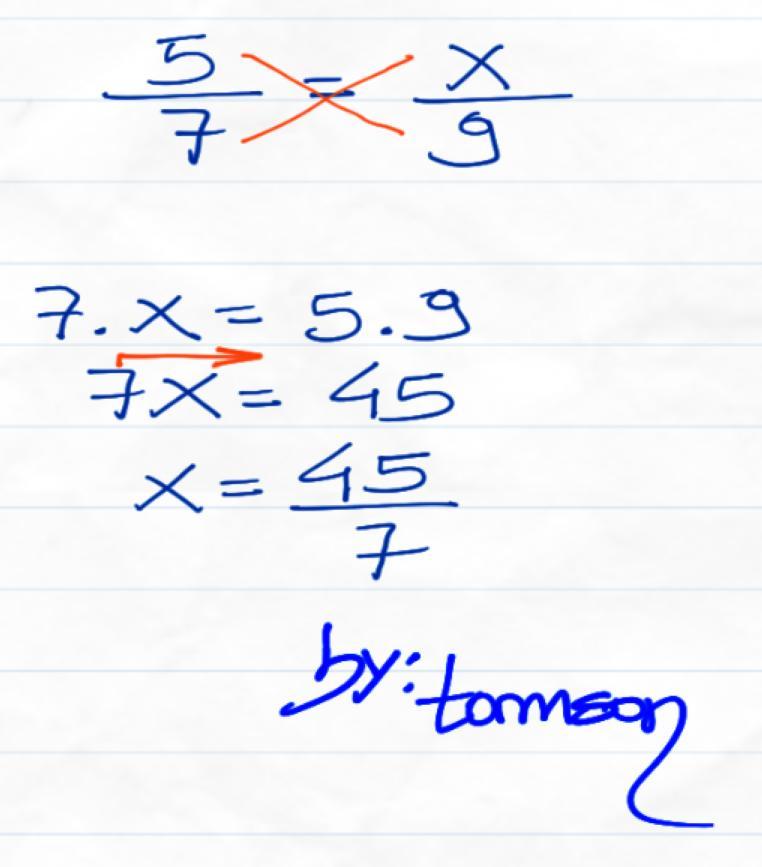 5/7 = x/9
7.x = 5.9
7x = 45
x = 45/7
by: tormson